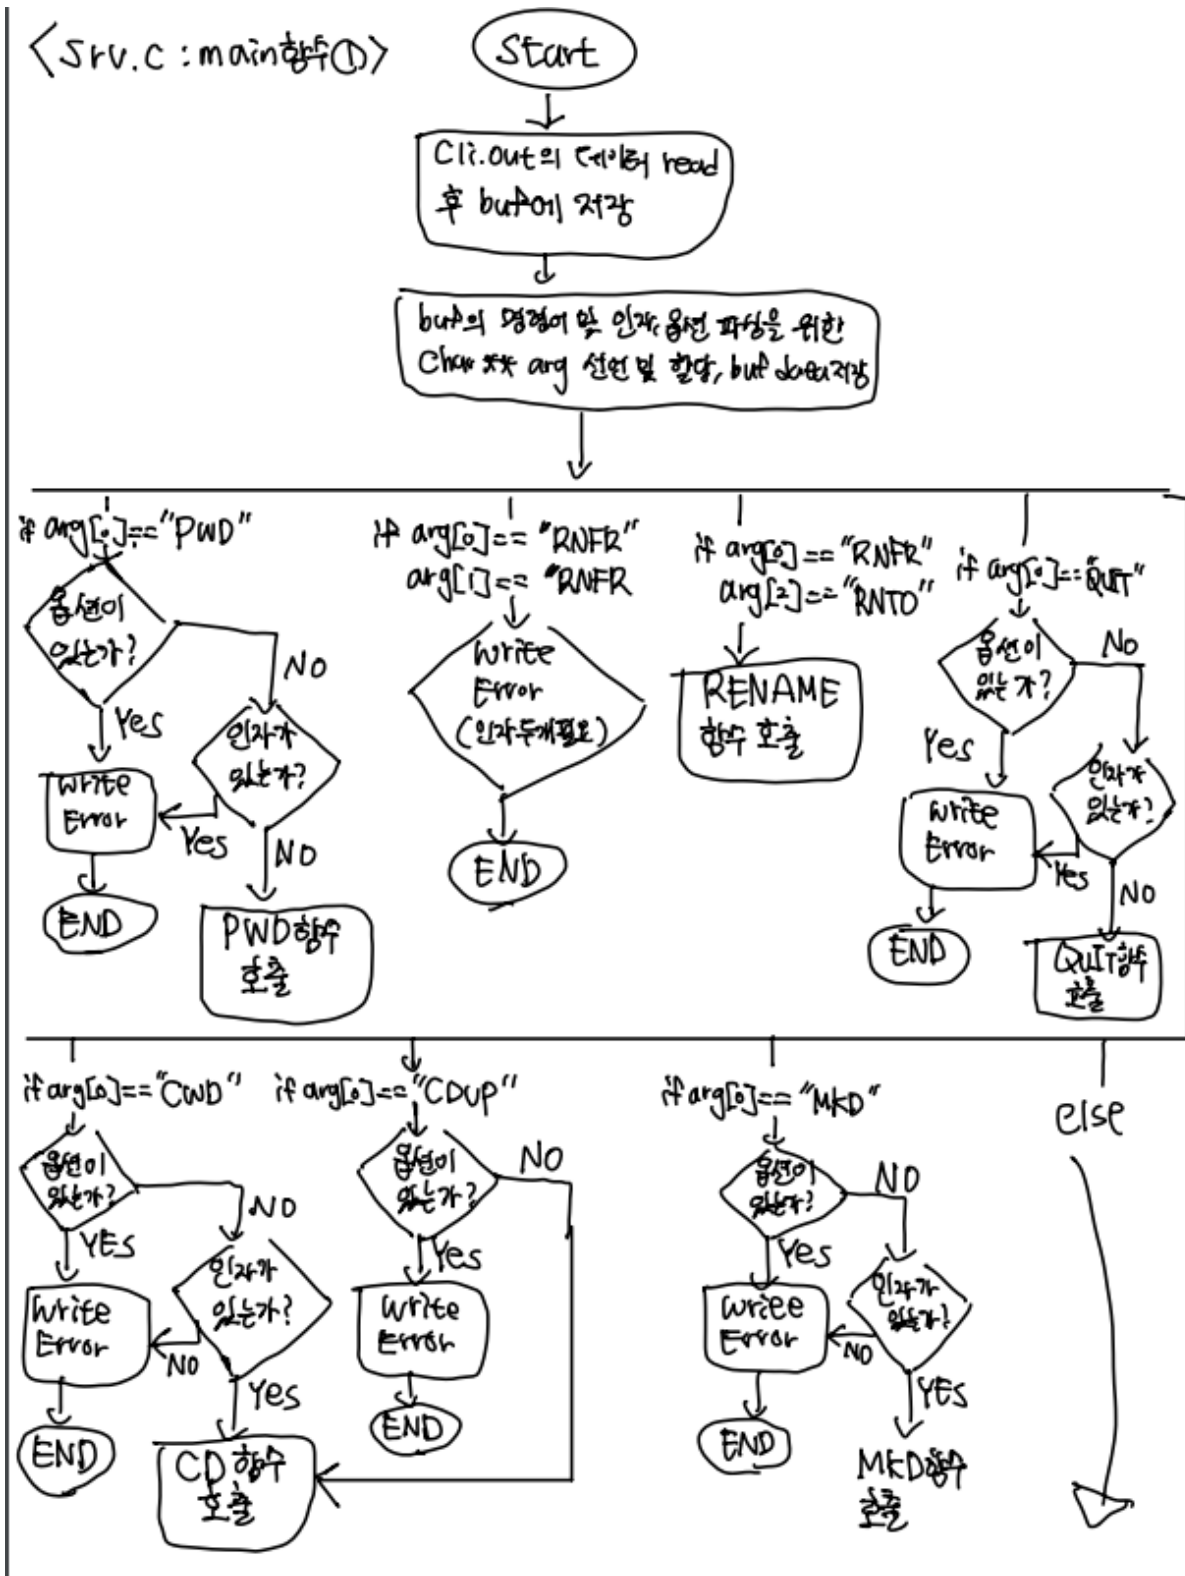 <Srv.c : main함수①>
Start
Cli.out의 데이터 read
후 buf에 저장
buf의 명령어 및 인자, 옵션 파싱을 위한
Char** arg 선언 및 할당, buf data저장
if arg[0]=="PWD"
옵션이
있는가?
NO
Yes
인자가
있는가?
Write
Error
Yes
NO
END
PWD함수
호출
if arg[0]== "RNFR"
arg[1]== "RNFR
Write
Error
(인자두개필요)
END
if arg[0]=="RNFR"
arg[2]=="RNTO"
RENAME
함수 호출
if arg[0]=="QUIT"
옵션이
있는가?
NO
Yes
인자가
있는가?
Write
Error
Yes
NO
END
QUIT함수
호출
if arg[0]=="CWD"
옵션이
있는가?
NO
YES
인자가
있는가?
Write
Error
NO
Yes
END
CD함수
호출
if arg[0]=="CDUP"
옵션이
있는가?
NO
Yes
Write
Error
END
if arg[0]=="MKD"
옵션이
있는가?
NO
Yes
인자가
있는가?
Write
Error
NO
YES
END
MKD함수
호출
else